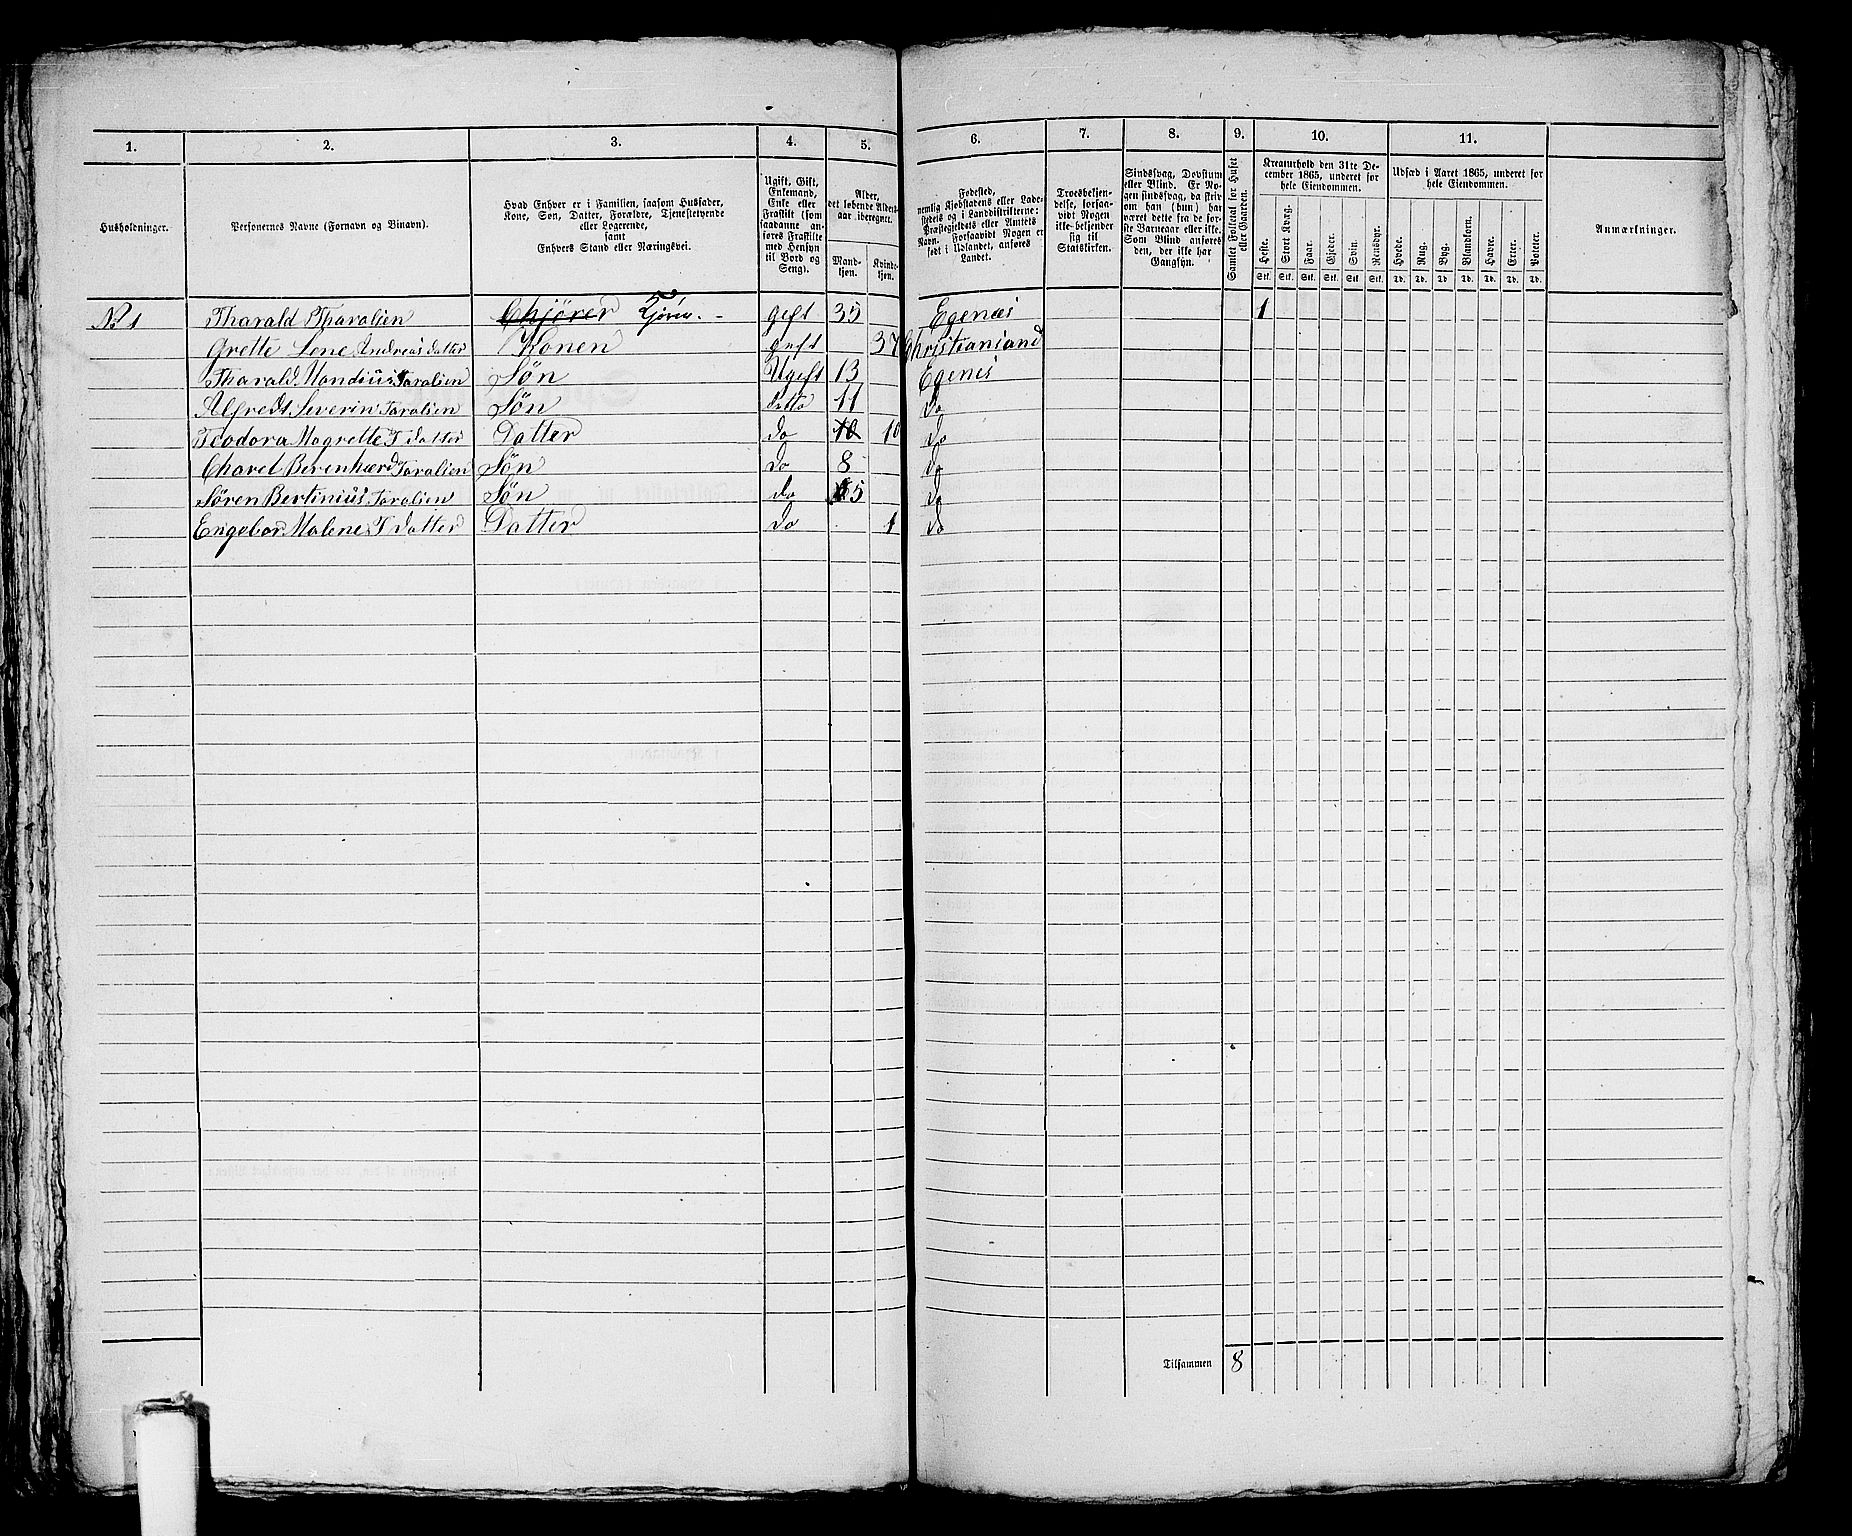 1. 2. 3. 4. 5. 6. 7. 8. 9. 10. 11.
Husholdninger.
Personernes Navne (Fornavn og Binavn).
Hvad Enhver er i Familien, saasom Husfader,
Kone, Søn, Datter, Forældre, Tjenestetyende
eller Logerende,
samt
Enhvers Stand eller Næringsvei.
Ugift, Gift,
Enkemand,
Enke eller
Fraskilt (som
saadanne an-
føres Fraskilte
med Hensyn
til Bord og
Seng).
Alder,
det løbende Alders-
aar iberegnet.
Mand-
kjøn.
Kvinde-
kjøn.
Fødested,
nemlig Kjøbstadens eller Lade-
stedets og i Landdistrikterne:
Præstegjeldets eller Amtets
Navn. Forsaavidt Nogen er
født i Udlandet, anføres
Landet.
Troesbekjen-
delse, forsaa-
vidt Nogen
ikke bekjender
sig til
Statskirken.
Sindssvag, Døvstum
eller Blind. Er No-
gen sindssvag, da skriv
om han (hun) har
været dette fra de før-
ste Barneaar eller ikke.
Som Blind anføres
den, der ikke har
Gangsyn.
Samlet Folketal for Huset
eller Gaarden.
Kreaturhold den 31te De-
cember 1865, underet for
hele Eiendommen.
Heste. Stort Kvæg. Faar. Gjeder. Svin. Rensdyr.
Stk. Stk. Stk. Stk. Stk. Stk.
Udsæd i Aaret 1865, underet for
hele Eiendommen.
Hvede. Rug. Byg. Blandkorn. Havre. Erter. Poteter.
Td. Td. Td. Td. Td. Td. Td.
Anmærkninger.
No 1 Tharald Tharalsen Chjører Kjører. gift 35 Egenæs 1
Grette Lene Andreas datter Konen gift 37 Christiansand
Tharald Mandius Taralsen Søn Ugift 13 Egenes
Alfredt Severin Taralsen Søn detto 11 do
Teodora Magrette T datter Datter do 10 10 do
Charel Berenhærd Taralsen Søn do 8 do
Søren Bertinius Taralsen Søn do 5 do
Engebor Malene T datter Datter do 1 do
Tilsammen 8